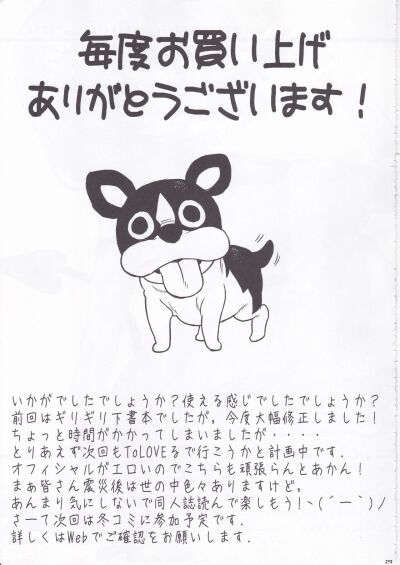 毎度お買い上げ
ありがとうございます！
いかがでしたでしょうか？使える感じでしたでしょうか？
前回はギリギリ下書本でしたが，今度大幅修正しました！
ちょっと時間がかかってしまいましたが・・・・
とりあえず次回もToLOVEるで行こうかと計画中です．
オフィシャルがエロいのでこちらも頑張らんとあかん！
まぁ皆さん震災後は世の中色々ありますけど，
あんまり気にしないで同人誌読んで楽しもう！ヽ(´ー｀)ノ
さーて次回は冬コミに参加予定です．
詳しくはWebでご確認をお願いします．